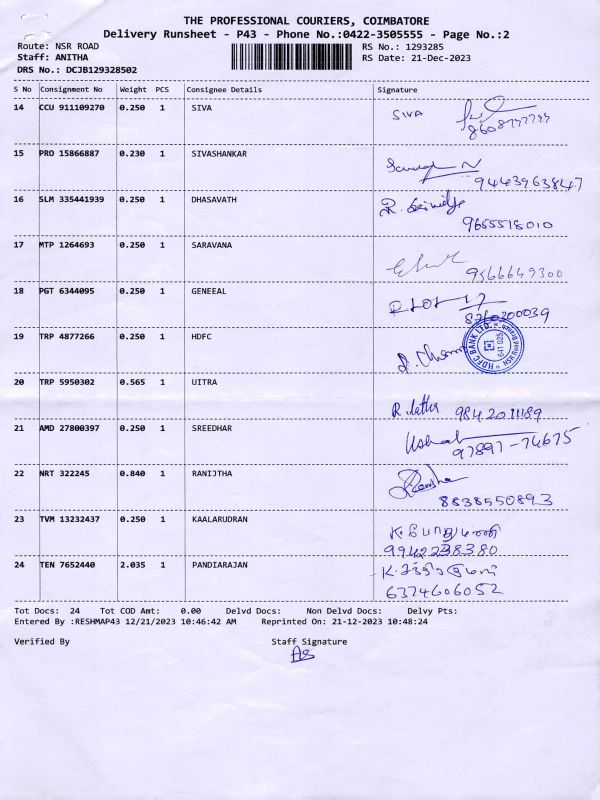 THE PROFESSIONAL COURIERS, COIMBATORE
Delivery Runsheet - P43 - Phone No.:0422-3505555 - Page No.:2
Route: NSR ROAD RS No.: 1293285
Staff: ANITHA RS Date: 21-Dec-2023
DRS No.: DCJB129328502
S No Consignment No Weight PCS Consignee Details Signature
14 CCU 911109270 0.250 1 SIVA SIVA
15 PRO 15866887 0.230 1 SIVASHANKAR
9443963847
16 SLM 335441939 0.250 1 DHASAVATH
9655518010
17 MTP 1264693 0.250 1 SARAVANA
9566649300
18 PGT 6344095 0.250 1 GENEEAL
8760200039
19 TRP 4877266 0.250 1 HDFC
HDFC BANK LTD.
641 025
20 TRP 5950302 0.565 1 UITRA
R. Latha 9842011189
21 AMD 27800397 0.250 1 SREEDHAR
97897-74675
22 NRT 322245 0.840 1 RANIJTHA
8838550893
23 TVM 13232437 0.250 1 KAALARUDRAN
9942238380
24 TEN 7652440 2.035 1 PANDIARAJAN
6374606052
Tot Docs: 24 Tot COD Amt: 0.00 Delvd Docs: Non Delvd Docs: Delvy Pts:
Entered By :RESHMAP43 12/21/2023 10:46:42 AM Reprinted On: 21-12-2023 10:48:24
Verified By Staff Signature